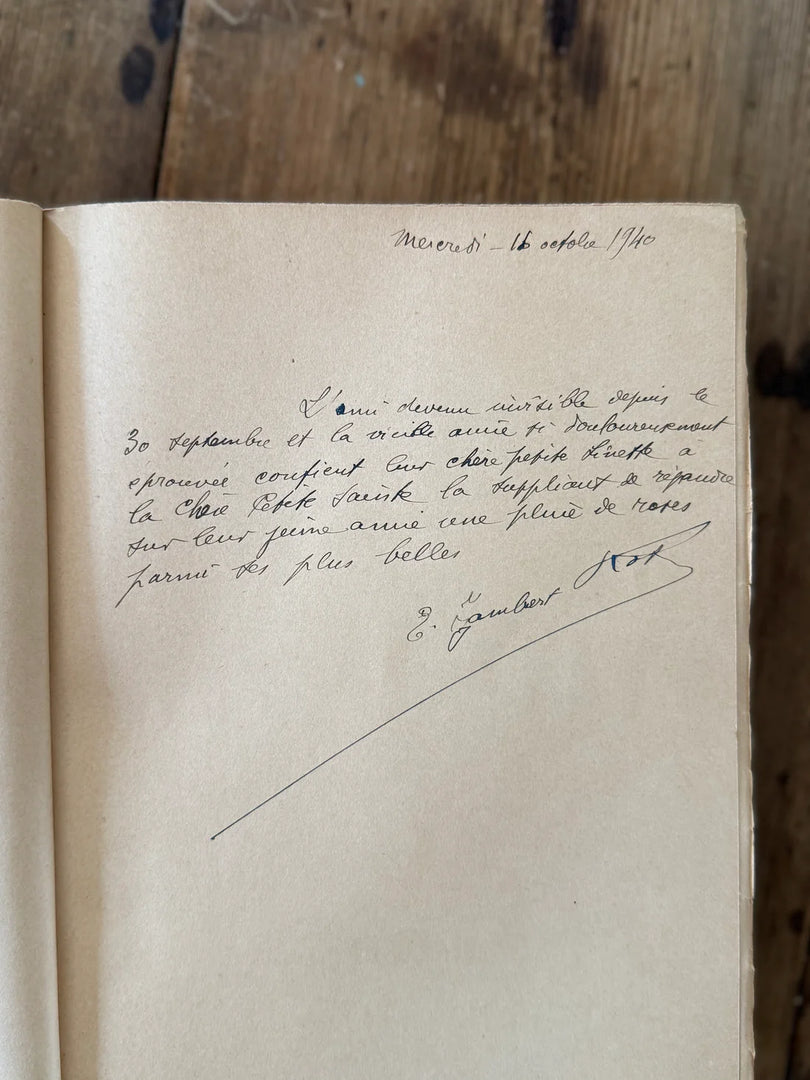 Mercredi - 16 octobre 1940
L'ami devenu invisible depuis le
30 septembre et la vieille amie si douloureusement
éprouvée confient leur chère petite Linette à
la Chère Petite Sainte la suppliant de répandre
sur leur jeune amie une pluie de roses
parmi ses plus belles
E. Jambert